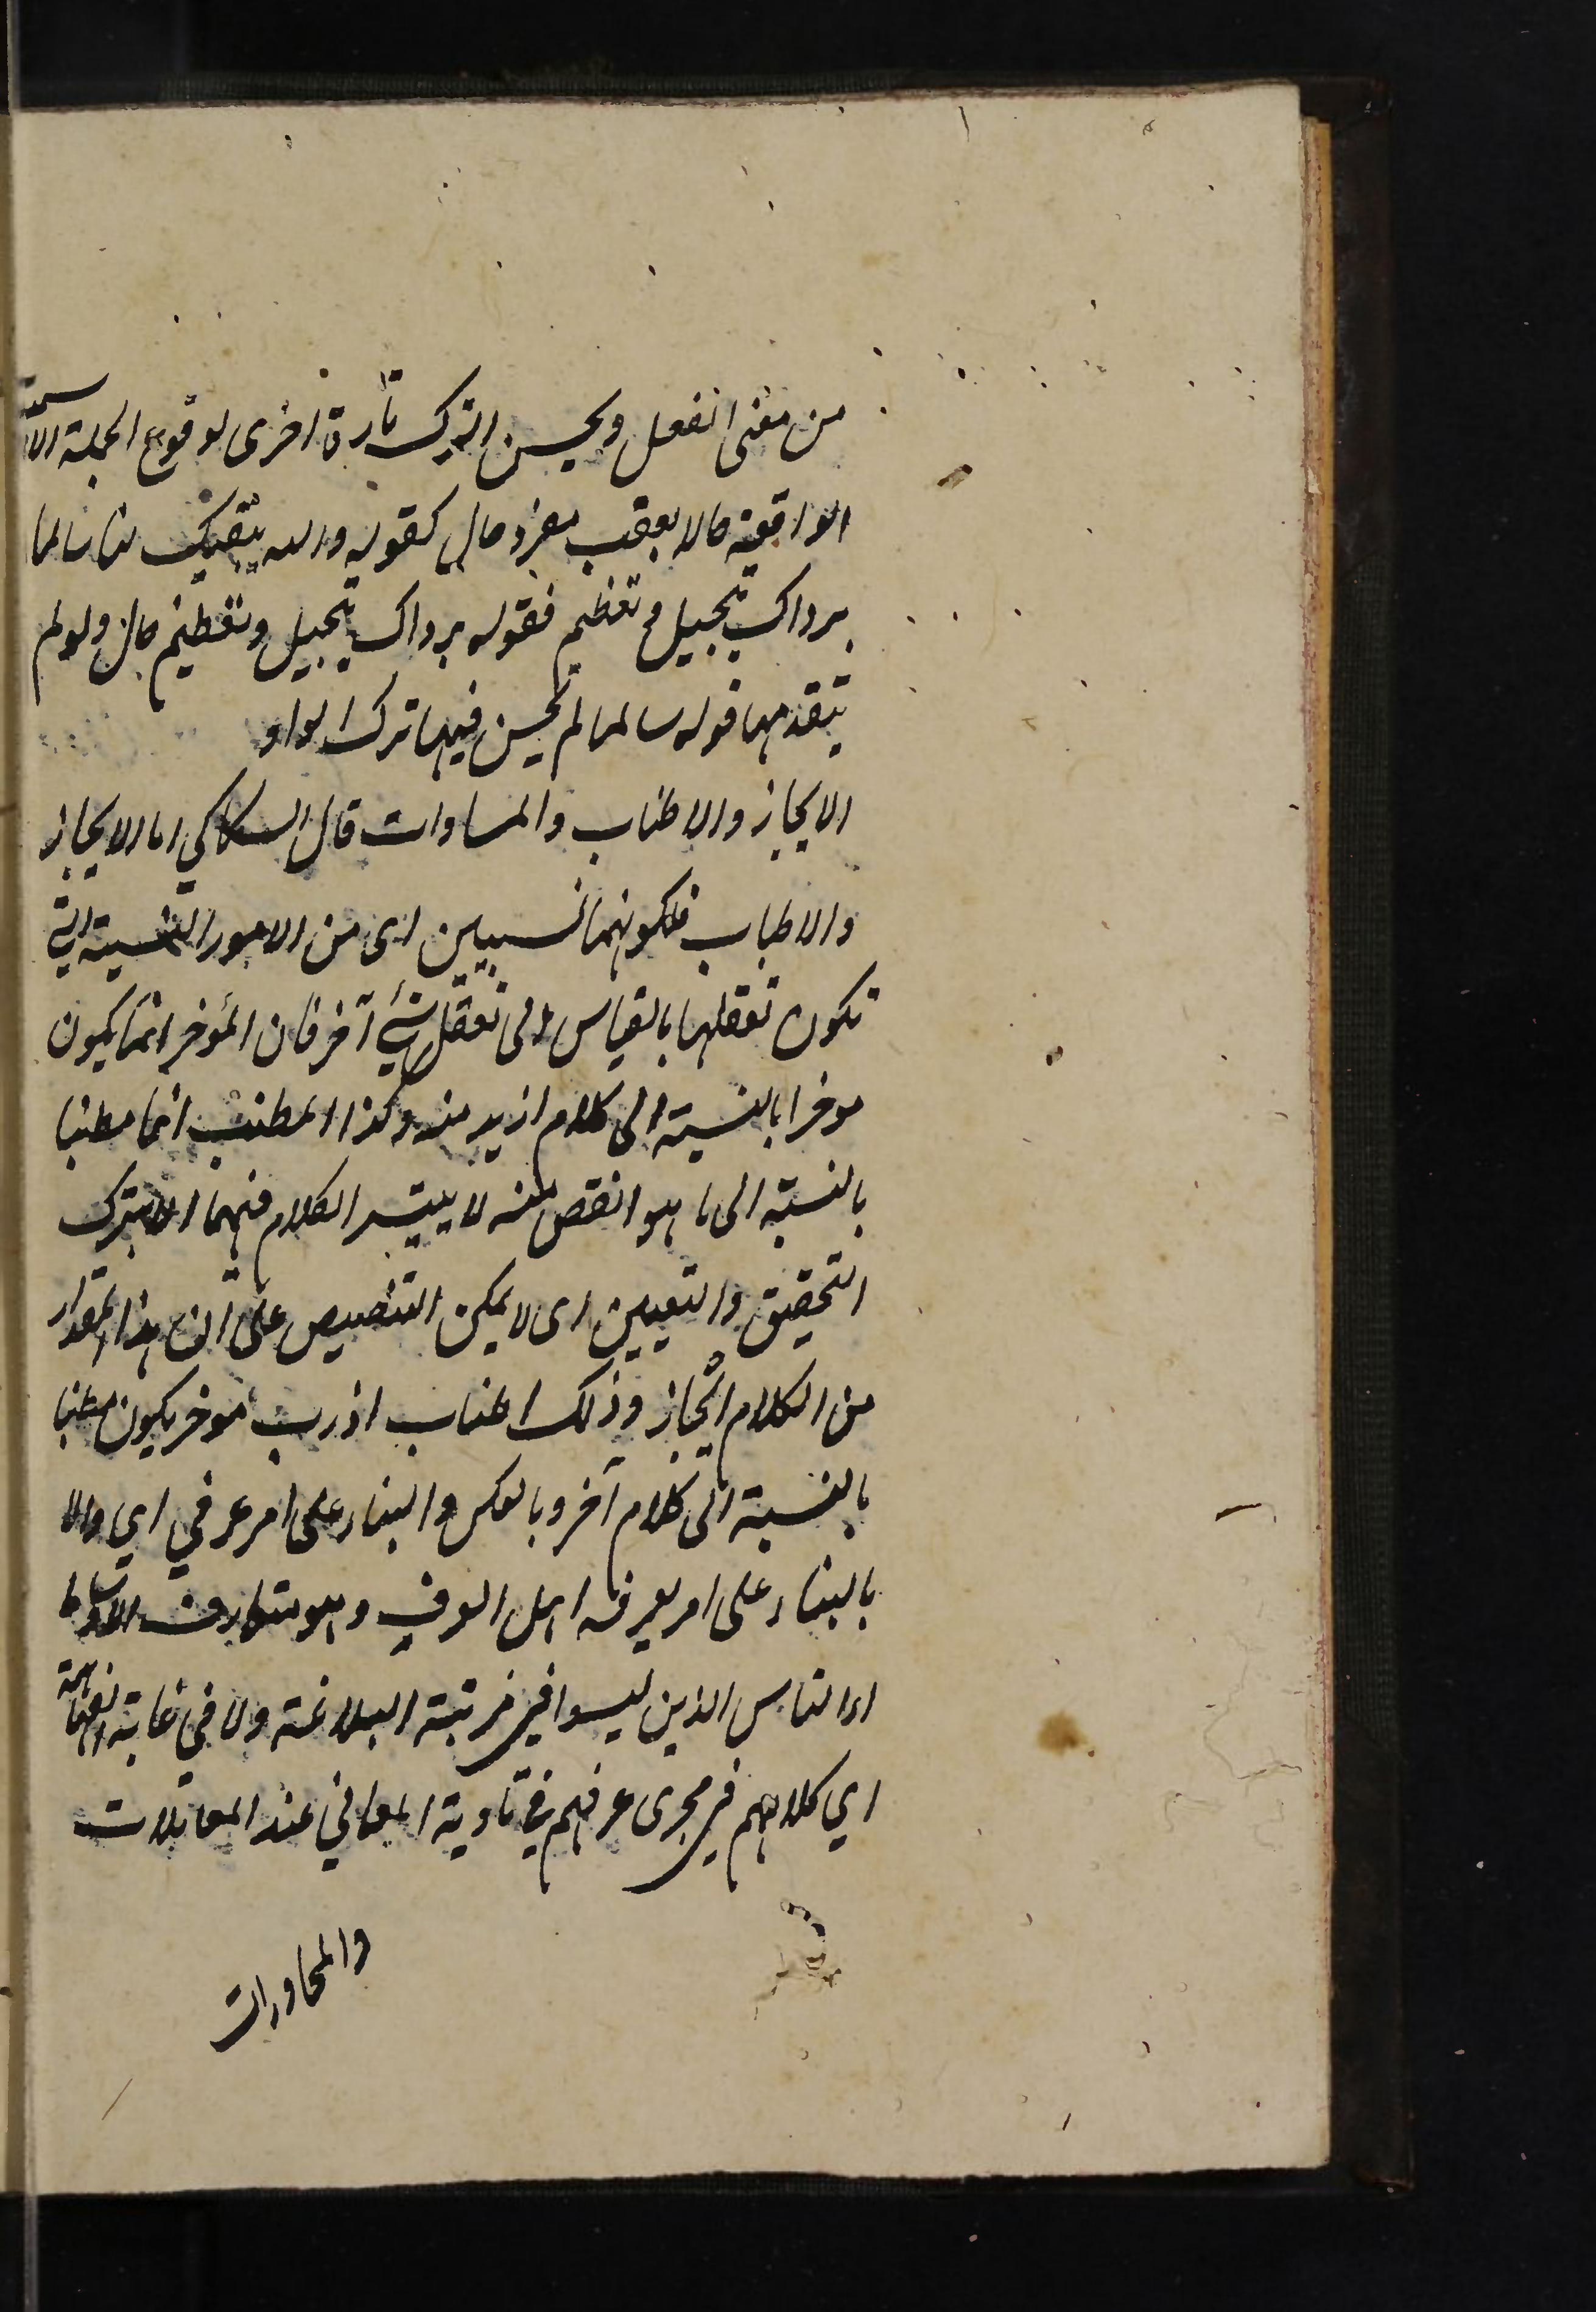 من معنى الفعل ويحسن الترك تارة اخرى لوقوع الجملة الاسمية
الواقعة حالا بعقب مفرد حال كقوله والله يبقيك لنا سالما
برداك تبجيل وتعظيم فقوله برداك تبجيل وتعظيم حال ولو لم
يتقدمها قوله سالما لم يحسن فيها ترك الواو
الايجاز والاطناب والمساوات قال السكاكي اما الايجاز
والاطناب فلكونهما نسبيين اى من الامور النسبية التي
تكون تعقلها بالقياس الى تعقل شئ آخر فان الموخر انما يكون
موخرا بالنسبة الى كلام ازيد منه وكذا المطنب انما مطنبا
بالنسبة الى ما هو انقص منه لا يتيسر الكلام فيهما الا بترك
التحقيق والتعيين اى لا يمكن التنصيص على ان هذا المقدار
من الكلام ايجاز وذلك اطناب اذ رب موخر يكون مطنبا
بالنسبة الى كلام آخر وبالعكس والبناء على امر عرفي اي والا
بالبناء على امر يعرفه اهل العرف وهو متعارف الاوساط
اذا الناس الذين ليسوا في مرتبة البلاغة ولا في غاية الفهاهة
اي كلامهم في مجرى عرفهم في تادية المعاني عند المعاملات
والمحاورات